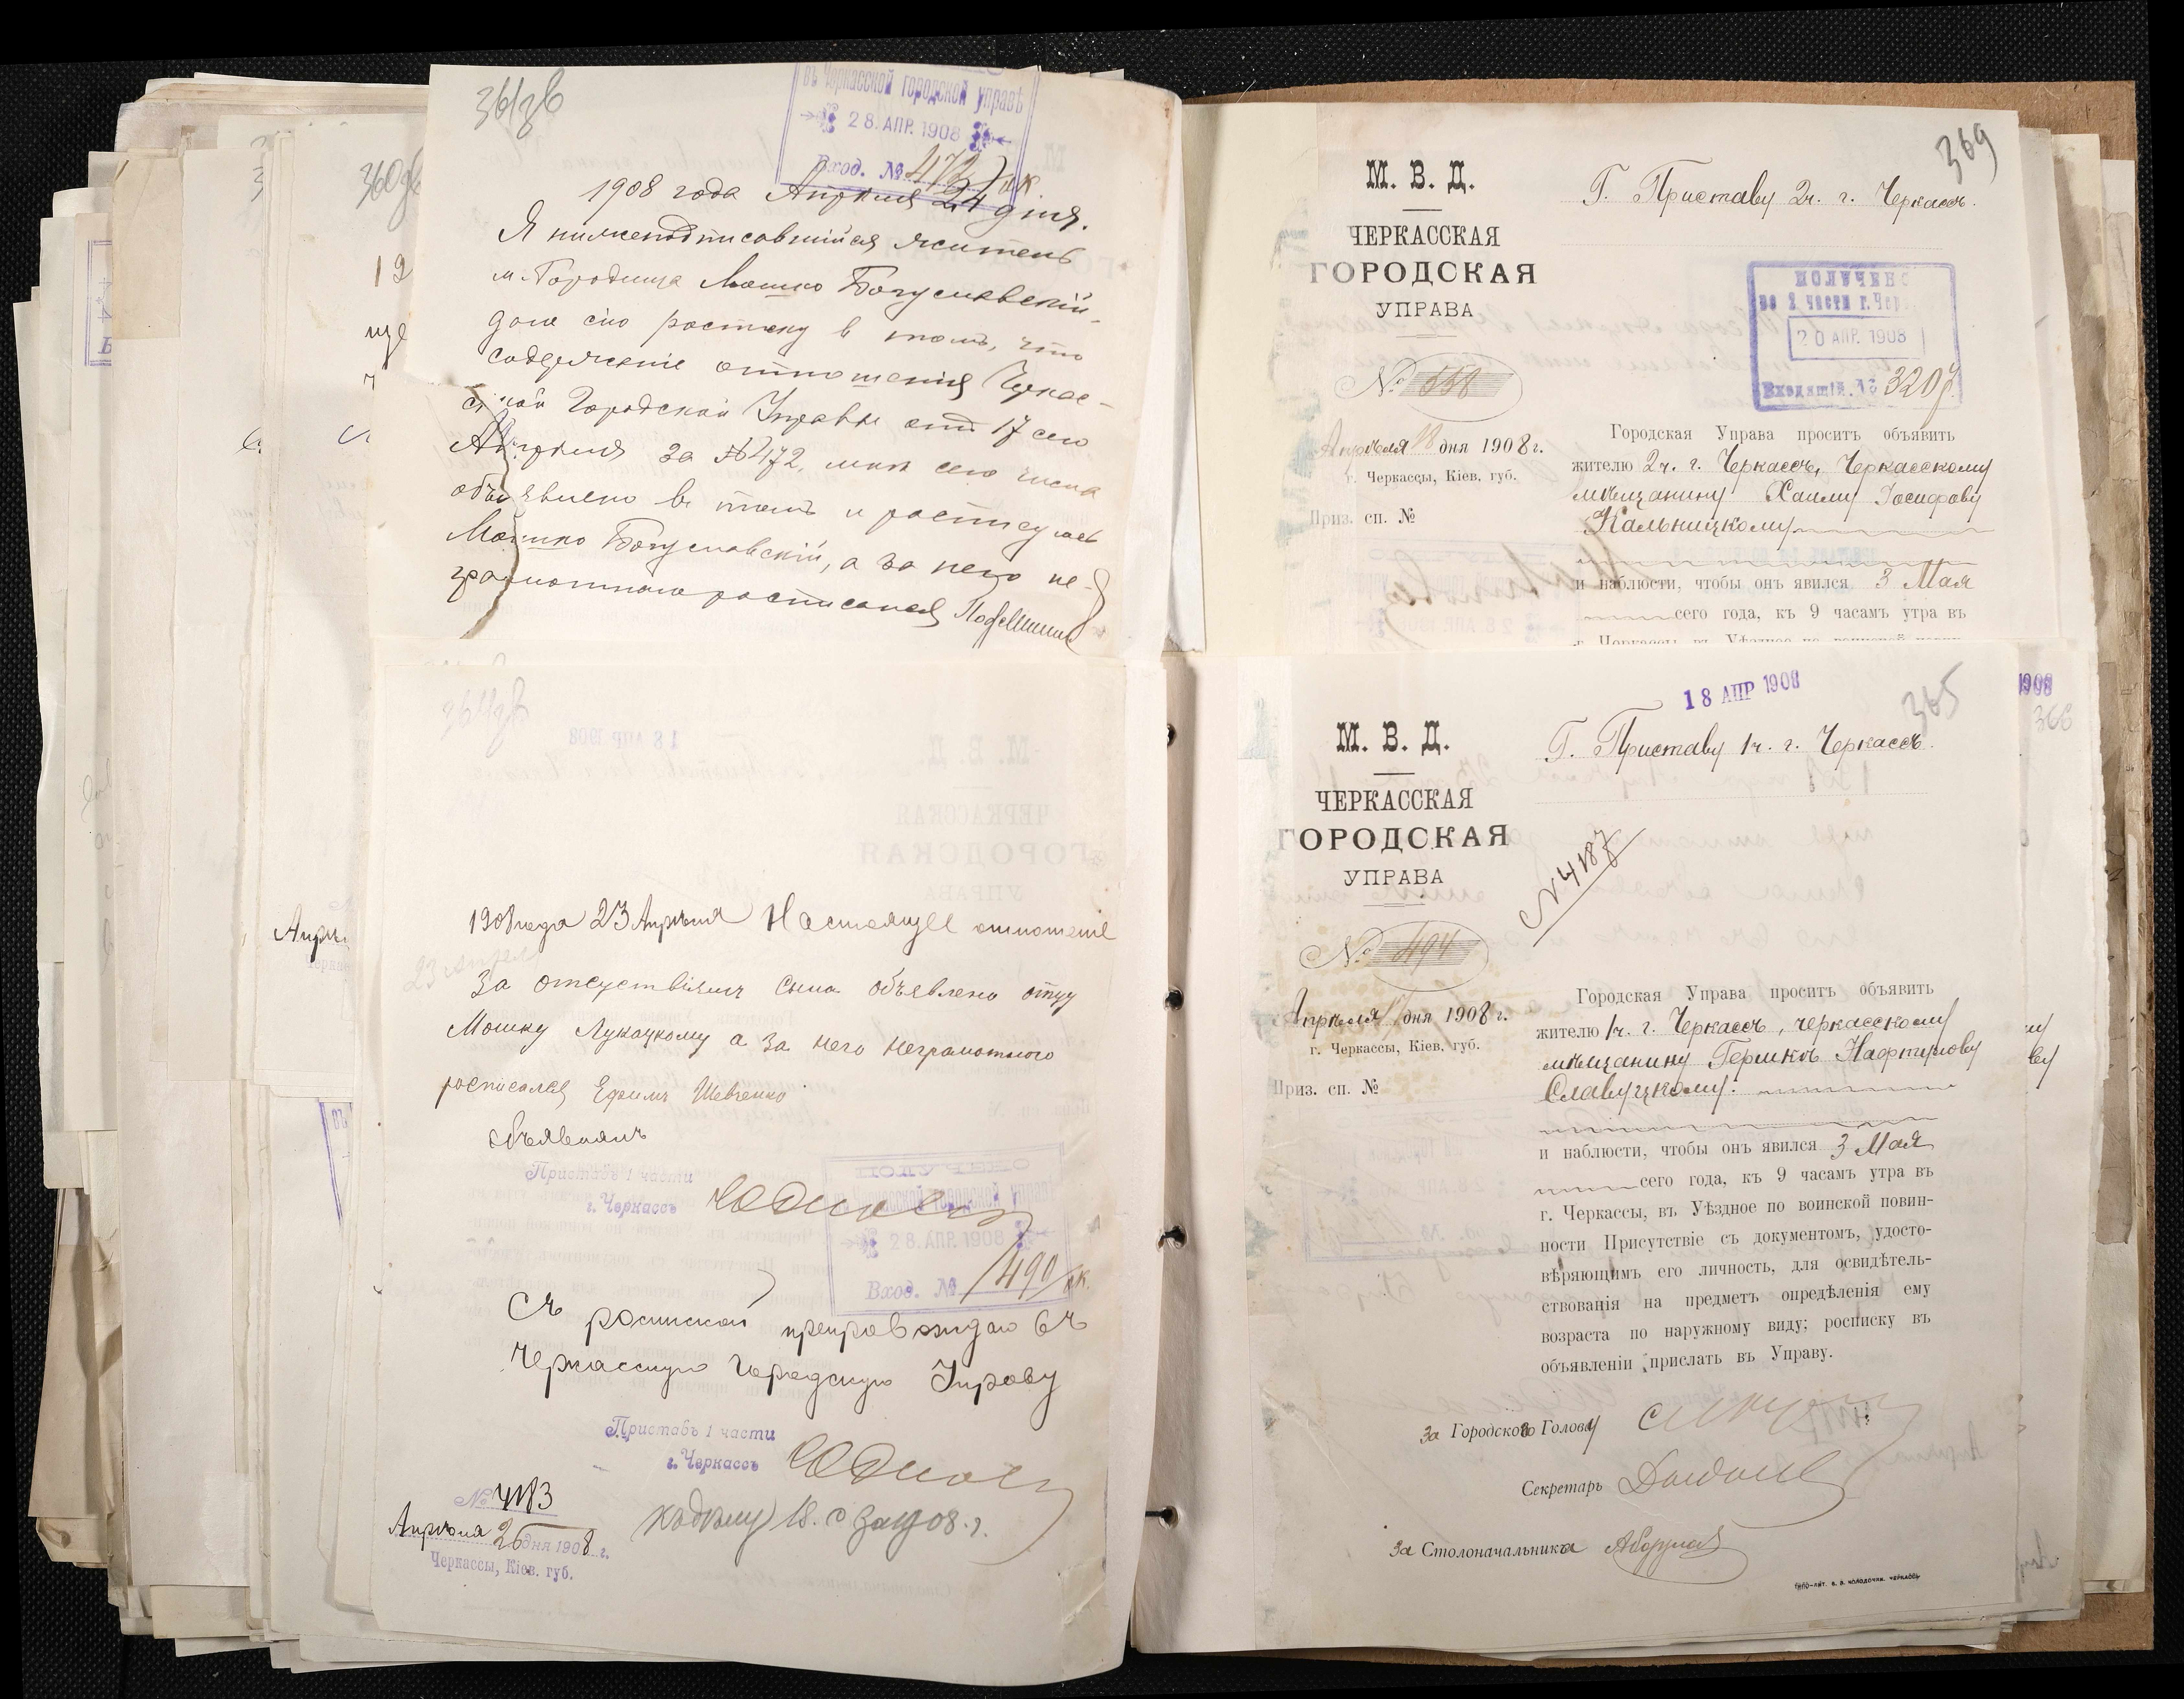 361 зв
въ Черкасской городской управѣ
28. АПР. 1908
Вход. № 472/вк.
1908 года Апреля 24 дня.
Я нижеподписавшійся житель
м. Городища Мошко Богуславскій
даю сію расписку в томъ, что
содержаніе отношенія Черкас-
ской Городской Управы отъ 17 сего
Апреля за № 472, мнѣ сего числа
объявлено въ томъ и росписуюсь
Мошко Богуславскій, а за него не-
грамотнаго расписался
1908 года 23 Апрѣля Настоящее отношеніе
за отсуствіемъ сына объявлено отцу
Мошку Лукацкому а за него неграмотного
росписался Ефимъ Шевченко
объявилъ
Приставъ 1 части
г. Черкассъ
въ Черкасской городской управѣ
28. АПР. 1908
Вход. № 490/вк.
Съ роспиской препровождаю въ
Черкасскую Городскую Управу
Приставъ 1 части
г. Черкассъ
№ 4183
Апрѣля 26 дня 1908 г.
Черкассы, Кіев. губ.
369
М. В. Д.
Г. Приставу 2ч. г. Черкассъ.
ЧЕРКАССКАЯ
ГОРОДСКАЯ
УПРАВА
ПОЛУЧЕНО
20 АПР. 1908
Входящій № 3207
№ 558
Апрѣля 18 дня 1908 г.
г. Черкассы, Кіев. губ.
Приз. сп. №
Городская Управа проситъ объявить
жителю 2ч. г. Черкассъ, Черкасскому
мѣщанину Хаиму Іосифову
Кальницкому
и наблюсти, чтобы онъ явился 3 Мая
сего года, къ 9 часамъ утра въ
18 АПР 1908
365
1908
366
М. В. Д.
Г. Приставу 1ч. г. Черкассъ.
ЧЕРКАССКАЯ
ГОРОДСКАЯ
УПРАВА
№ 4187
№ 494
Апрѣля дня 1908 г.
г. Черкассы, Кіев. губ.
Приз. сп. №
Городская Управа проситъ объявить
жителю 1ч. г. Черкассъ, черкасскому
мѣщанину Гершкѣ Нафтулову
Славуцкому.
и наблюсти, чтобы онъ явился 3 Мая
сего года, къ 9 часамъ утра въ
г. Черкассы, въ Уѣздное по воинской повин-
ности Присутствіе съ документомъ, удосто-
вѣряющимъ его личность, для освидѣтель-
ствованія на предметъ опредѣленія ему
возраста по наружному виду; росписку въ
объявленіи прислать въ Управу.
За Городского Голову
Секретарь
За Столоначальника